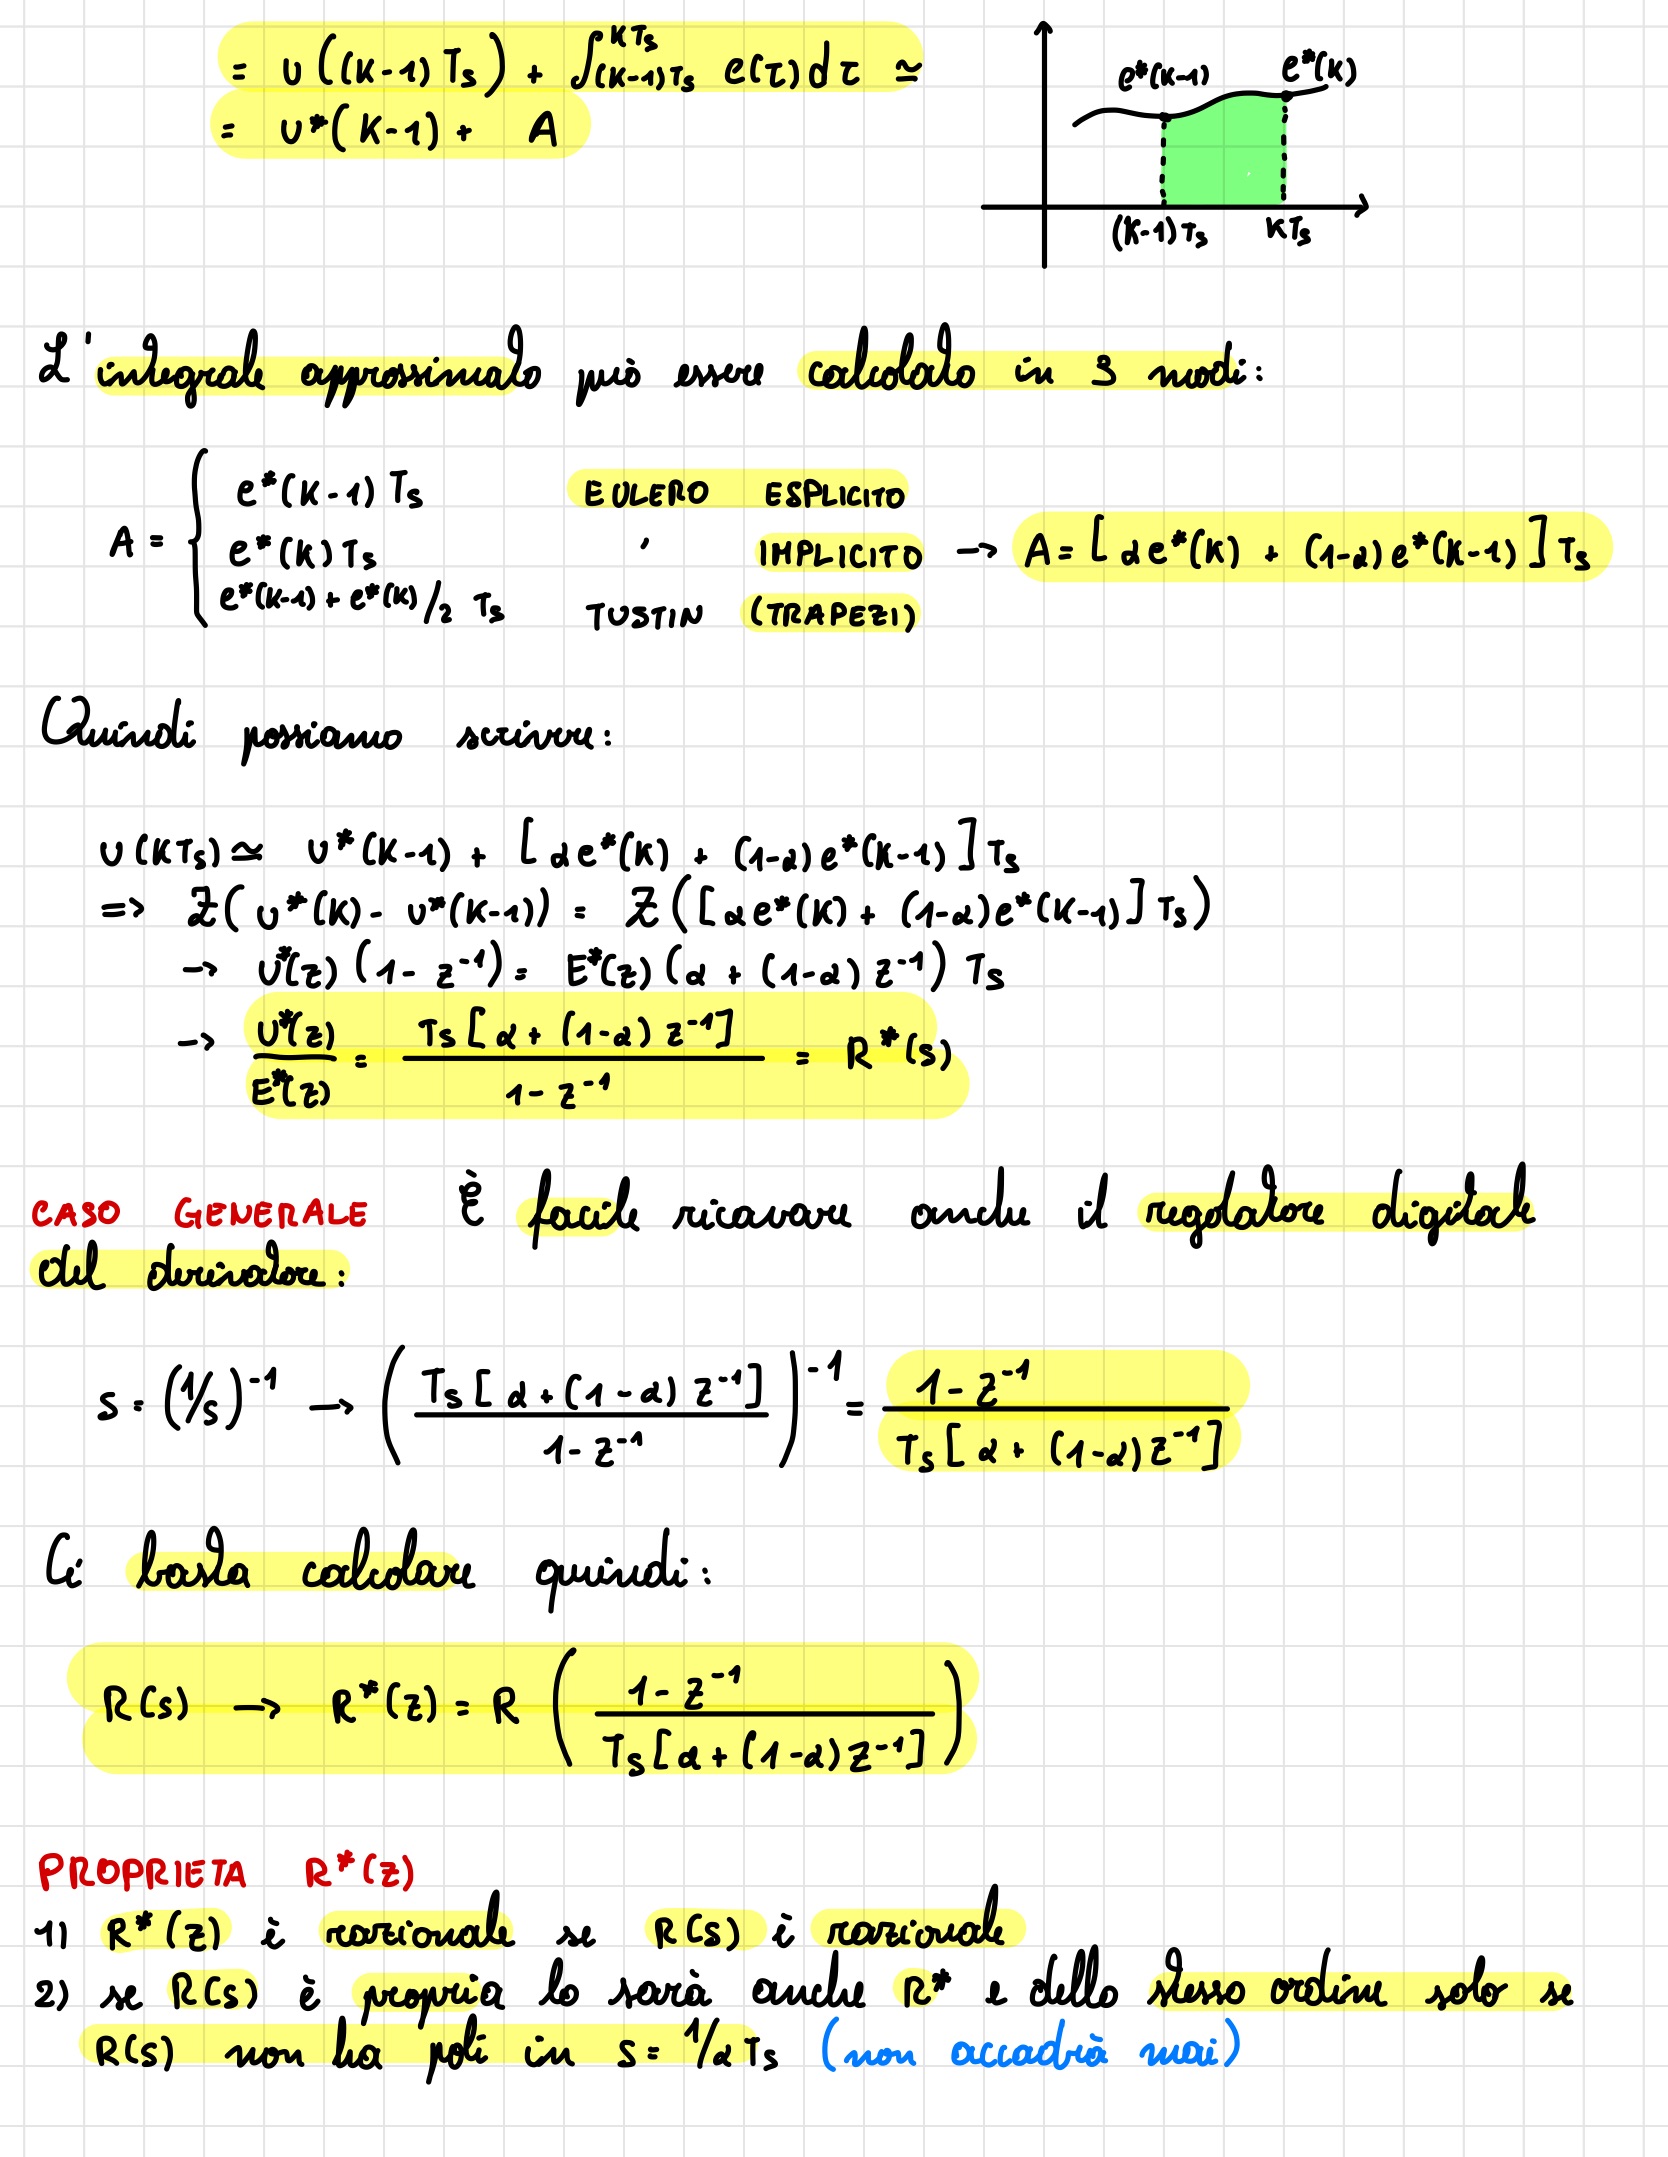 = u((K-1)Ts) + ∫_{(K-1)Ts}^{KTs} e(τ)dτ ≃
= u*(K-1) + A
e*(K-1) e*(K)
(K-1)Ts KTs
L'integrale approssimato può essere calcolato in 3 modi:
e*(K-1) Ts EULERO ESPLICITO
A = { e*(K) Ts ' IMPLICITO → A = [αe*(K) + (1-α)e*(K-1)]Ts
e*(K-1) + e*(K)/2 Ts TUSTIN (TRAPEZI)
Quindi possiamo scrivere:
u(KTs) ≃ u*(K-1) + [αe*(K) + (1-α)e*(K-1)]Ts
=> Z(u*(K) - u*(K-1)) = Z([αe*(K) + (1-α)e*(K-1)]Ts)
→ U*(z)(1 - z⁻¹) = E*(z)(α + (1-α)z⁻¹) Ts
→ U*(z)/E*(z) = Ts[α + (1-α)z⁻¹]/(1 - z⁻¹) = R*(s)
CASO GENERALE È facile ricavare anche il regolatore digitale
del derivatore:
s = (1/s)⁻¹ → (Ts[α + (1-α)z⁻¹]/(1 - z⁻¹))⁻¹ = (1 - z⁻¹)/(Ts[α + (1-α)z⁻¹])
Ci basta calcolare quindi:
R(s) → R*(z) = R((1 - z⁻¹)/(Ts[α + (1-α)z⁻¹]))
PROPRIETA R*(z)
1) R*(z) è razionale se R(s) è razionale
2) se R(s) è propria lo sarà anche R* e dello stesso ordine solo se
R(s) non ha poli in s = 1/αTs (non accadrà mai)